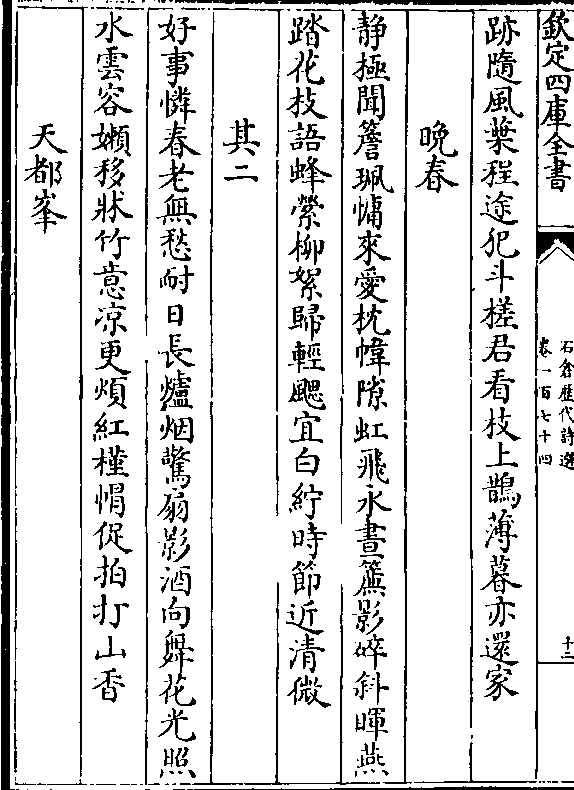 欽定四庫全書
石倉歷代詩選
卷一百七十四
十二
跡隨風葉程途犯斗槎君看枝上鵲薄暮亦還家
晚春
静極聞簷珮慵來愛枕幃隙虹飛永晝簾影碎斜暉燕
踏花枝語蜂縈柳絮歸輕颸宜白紵時節近清微
其二
好事憐春老無愁耐日長爐烟驚扇影酒向舞花光照
水雲容嬾移牀竹意凉更煩紅槿帽促拍打山香
天都峯